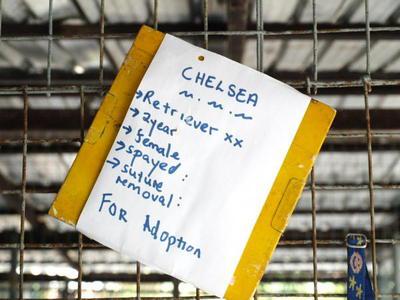 CHELSEA
~.~.~
→Retriever xx
→2year
→female
→spayed:
→suture
removal:
FOR Adoption